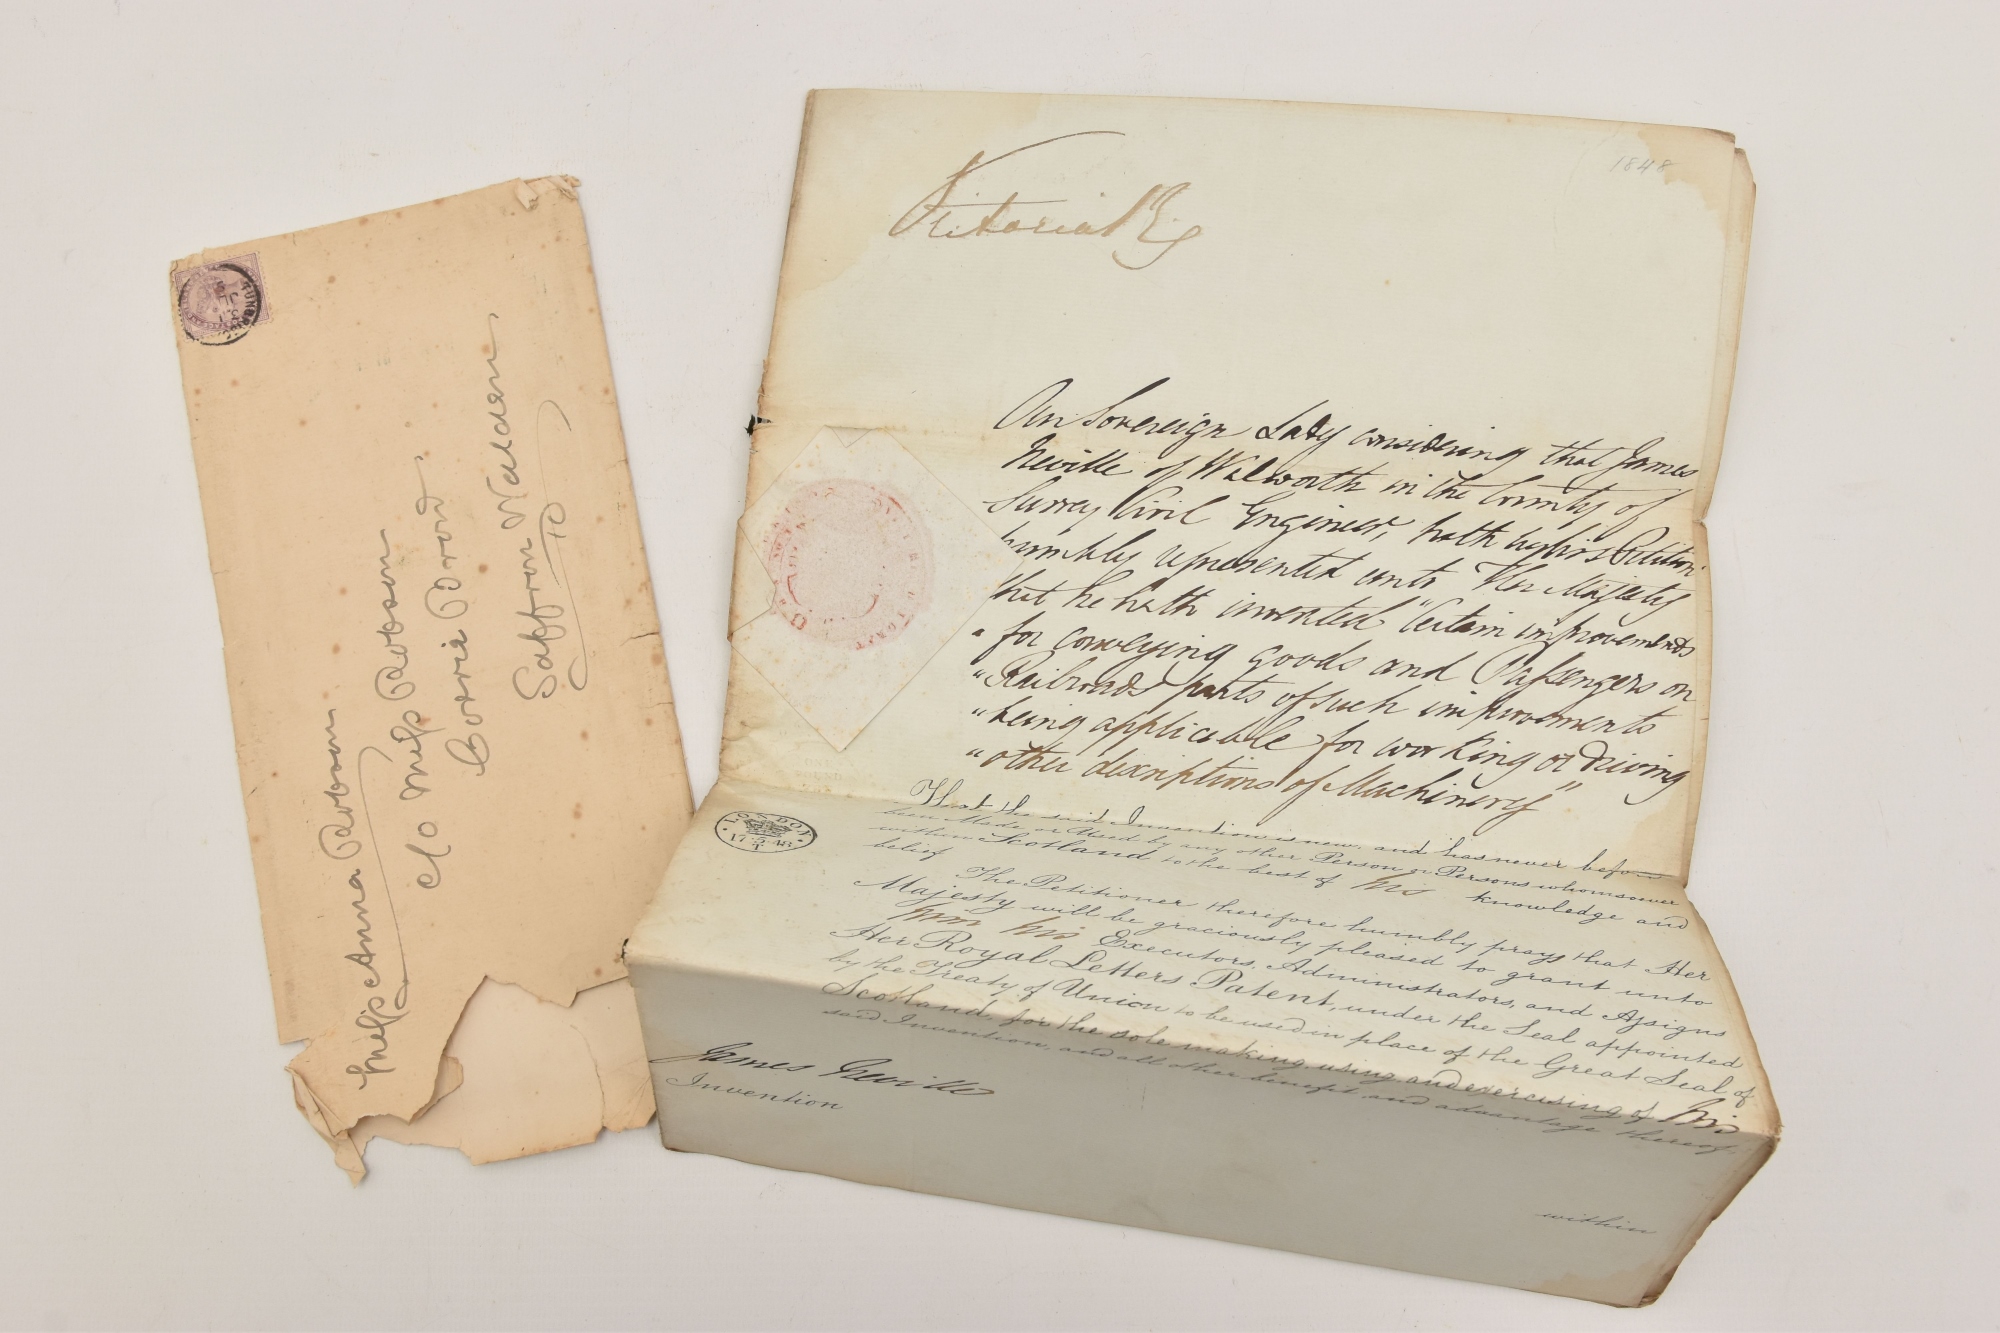 Miss Anna Robson
c/o Miss Robson
Saffron Walden
Victoria R
1848
Our Sovereign Lady considering that James
Neville of Walworth in the County of
Surrey Civil Engineer, hath by his Petition
humbly represented unto Her Majesty
that he hath invented "Certain improvements
"for conveying goods and Passengers on
"Railroads parts of such improvements
"being applicable for working or driving
"other descriptions of Machinery"
That the said Invention is new, and has never before
been Made or Used by any other Person or Persons whomsoever
within Scotland to the best of his knowledge and
belief
The Petitioner therefore humbly prays that Her
Majesty will be graciously pleased to grant unto
him his Executors, Administrators, and Assigns
Her Royal Letters Patent, under the Seal appointed
by the Treaty of Union to be used in place of the Great Seal of
Scotland, for the sole making, using, and exercising of his
said Invention, and all other benefit and advantage thereof
James Neville
Invention
within
LONDON